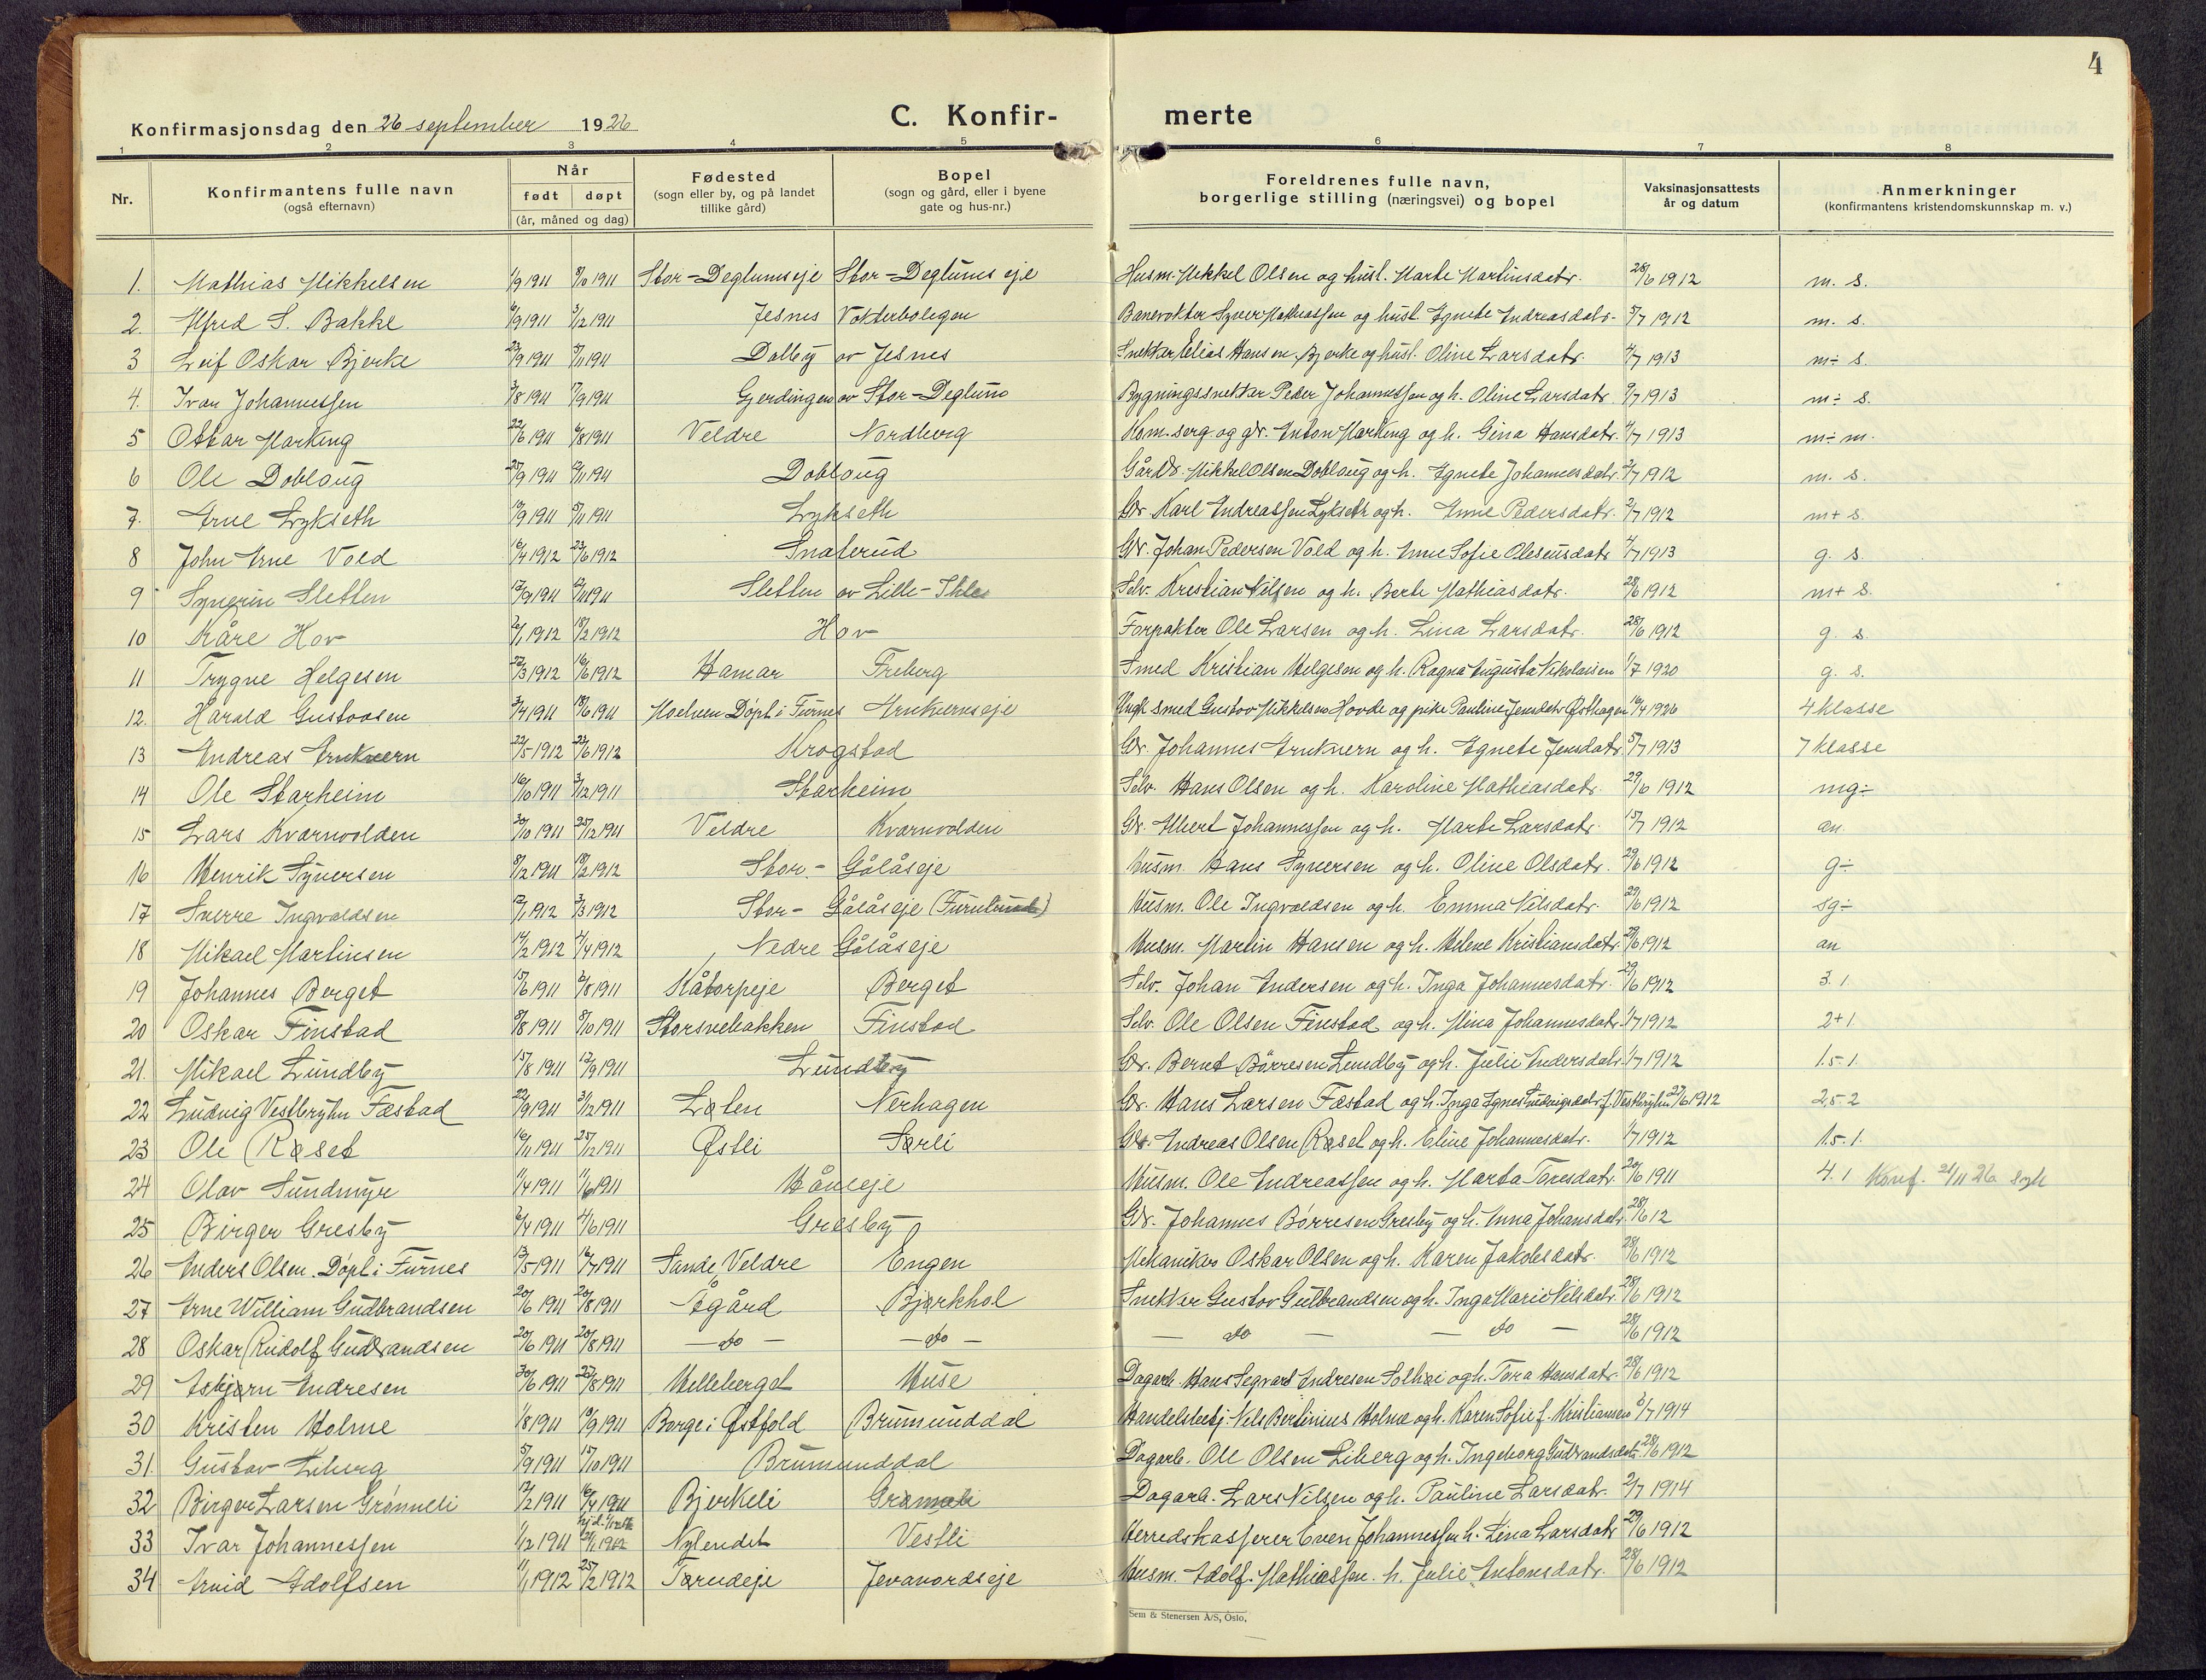 4
Konfirmasjonsdag den 26 september 1926
C. Konfir- merte
1 2 3 4 5 6 7 8
Nr. Konfirmantens fulle navn (også efternavn) Når født døpt (år, måned og dag) Fødested (sogn eller by, og på landet tillike gård) Bopel (sogn og gård, eller i byene gate og hus-nr.) Foreldrenes fulle navn, borgerlige stilling (næringsvei) og bopel Vaksinasjonsattests år og datum Anmerkninger (konfirmantens kristendomskunnskap m. v.)
1. Mathias Mikkelsen 1/9 1911 8/10 1911 Stor=Deglumseje Stor=Deglums eje Husm. Mikkel Olsen og hust. Marte Martinsdatr. 28/6 1912 m. s.
2. Alfred S. Bakke 6/9 1911 3/12 1911 Jesnes Vokterboligen Banevokter Syver Mathiassen og hust. Agnete Andreasdatr. 5/7 1912 m. s.
3 Leif Oskar Bjerke 23/9 1911 5/11 1911 Dalby av Jesnes Snekker Elias Hansen Bjerke og hust. Oline Larsdatr. 4/7 1913 m÷ s.
4. Ivar Johannessen 3/8 1911 17/9 1911 Gjerdingen av Stor=Deglum Bygningssnekker Peder Johannessen og h. Oline Larsdatr. 9/7 1913 m÷ s.
5 Oskar Harking 22/6 1911 6/8 1911 Veldre Nordberg Kom. serg og gbr. Anton Harking og h. Gina Hansdatr. 4/7 1913 m÷ m.
6 Ole Doblaug 25/9 1911 12/11 1911 Doblaug Gårdbr. Mikkel Olsen Doblaug og h. Agnete Johannesdatr. 2/7 1912 m. s.
7. Arne Lykseth 10/9 1911 5/11 1911 Lykseth Gbr. Karl Andreassen Lykseth og h. Anne Pedersdatr. 2/7 1912 m+ s.
8 John Arne Vold 16/4 1912 23/6 1912 Snaterud Gbr. Johan Pedersen Vold og h. Anne Sofie Olesusdatr 4/7 1913 g. s.
9 Syverin Sletten 17/9 1911 12/11 1911 Sletten av Lille-Ihle Selv. Kristian Nilsen og h. Berte Mathiasdatr. 28/6 1912 m+ s.
10 Kåre Hov 2/1 1912 18/2 1912 Hov Forpakter Ole Larsen og h. Lina Larsdatr. 28/6 1912 g. s.
11 Trygve Helgesen 22/3 1912 16/6 1912 Hamar Freberg Smed Kristian Helgesen og h. Ragna Augusta Nikolaisen 1/7 1920 g. s.
12. Harald Gustavsen 3/4 1911 18/6 1911 Moelven Døpt i Furnes Arnkverns eje Ungk. smed Gustav Mikkelsen Hovde og pike Pauline Jensdatr Østhagen 16/4 1926 4 klasse
13 Andreas Arnkvern 22/5 1912 23/6 1912 Krogstad Gbr. Johannes Arnkvern og h. Agnete Jensdatr 5/7 1913 7 klasse
14 Ole Starheim 16/10 1911 3/12 1911 Starheim Selv. Hans Olsen og h. Karoline Mathiasdatr. 29/6 1912 mg÷
15 Lars Kværnvolden 20/10 1911 25/12 1911 Veldre Kværnvolden Gbr. Albert Johannessen og h. Marte Larsdatr. 15/7 1912 an.
16 Henrik Syversen 8/12 1911 18/2 1912 Stor- Gålåseje Husm. Hans Syversen og h. Oline Olsdatr. 29/6 1912 g÷
17 Sverre Ingvaldsen 12/1 1912 3/3 1912 Stor- Gålåseje (Furulund) Husm. Ole Ingvaldsen og h. Emma Nilsdatr. 29/6 1912 sg÷
18 Mikael Martinsen 14/2 1912 4/4 1912 Nedre Gålåseje Husm. Martin Hansen og h. Helene Kristiansdatr. 29/6 1912 an
19 Johannes Berget 15/6 1911 6/8 1911 Kåtorpeje Berget Selv. Johan Andersen og h. Inga Johannesdatr. 29/6 1912 3. 1.
20 Oskar Finstad 8/8 1911 8/10 1911 Storsvebakken Finstad Selv. Ole Olsen Finstad og h. Mina Johannesdatr. 1/7 1912 2+1.
21. Mikael Lundby 15/8 1911 17/9 1911 Lundby Gbr. Bernt Børresen Lundby og h. Julie Andersdatr 1/7 1912 1.5-1.
22 Ludvig Vestbryhn Fæstad 22/9 1911 3/12 1911 Løten Nerhagen Gbr. Hans Larsen Fæstad og h. Inga Agnes Ludvigsdatr f. Vestbryhn 27/6 1912 2,5-2
23 Ole Røset 16/11 1911 25/12 1911 Østli Sørli Gbr. Andreas Olsen Røset og h. Eline Johannesdatr. 1/7 1912 1.5-1.
24 Olav Sundmyr 11/4 1911 11/6 1911 Håneeje Husm. Ole Andreassen og h. Marta Toresdatr. 20/6 1911 4.1 Konf. 21/11 26
25 Birger Gresby 2/4 1911 4/6 1911 Gresby Gbr. Johannes Børresen Gresby og h. Anna Johansdatr 28/6 12
26 Anders Olsen. Døpt i Furnes 13/5 1911 16/7 1911 Sande, Veldre Engen Mekaniker Oskar Olsen og h. Karen Jakobsdatr. 28/6 1912
27 Arne William Gudbrandsen 20/6 1911 20/8 1911 Ågård Bjørkhol Snekker Gustav Gulbrandsen og h. Inga Marie Nilsdatr. 28/6 1912
28 Oskar Rudolf Gudbrandsen 20/6 1911 20/8 1911 — do — — do — — do — — do — 28/6 1912
29 Asbjørn Andresen 30/6 1911 27/8 1911 Melleberget Huse Dagarb. Hans Segvard Andresen Solhøi og h. Tora Hansdatr 28/6 1912
30 Kristen Holme 1/8 1911 10/9 1911 Borge i Østfold Brumunddal Handelsbetj. Nels Bertinius Holme og h. Karen Sofie f. Kristiansen 3/7 1914
31. Gustav Liberg 5/9 1911 15/10 1911 Brumunddal Dagarb. Ole Olsen Liberg og h. Ingeborg Gudbrandsdatr. 28/6 1912
32 Birger Larsen Grønneli 17/2 1911 16/4 1911 Bjerkeli Dagarb. Lars Nilsen og h. Pauline Larsdatr. 2/7 1914
33 Ivar Johannessen 1/12 1911 21/1 1912 Nylendet Vestli Herredskasserer Even Johannessen h. Lina Larsdatr 29/6 1912
34 Arvid Adolfsen 11/1 1912 25/2 1912 Tørudeje Jevanordseje Husm. Adolf. Mathiassen. h. Julie Antonsdatr. 28/6 1912
Sem & Stenersen A/S, Oslo.